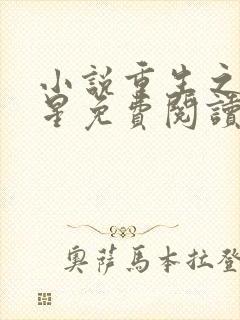 小說重生之
星免費閱讀
奧薩馬本拉登